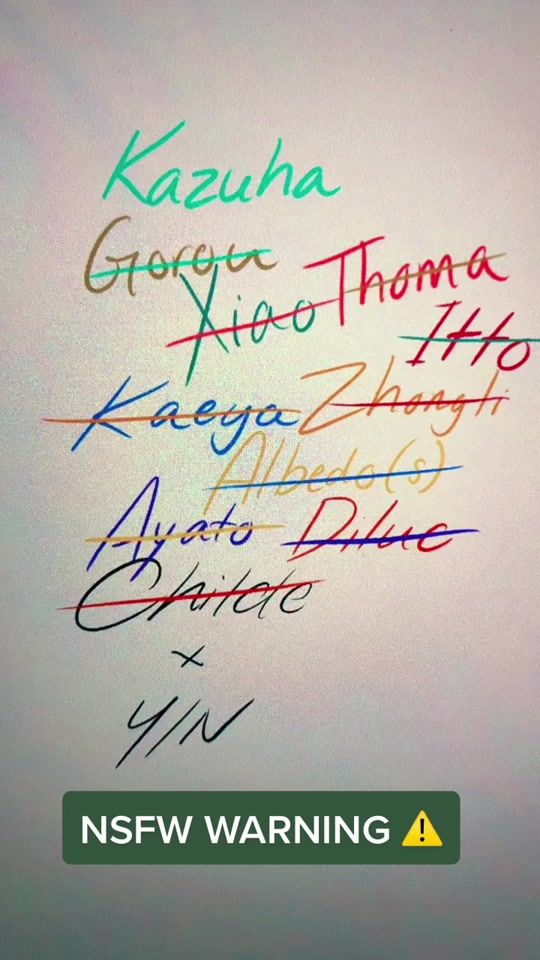 Kazuha
Gorou
Thoma
Xiao
Itto
Kaeya Zhongli
Albedo(s)
Ayato Diluc
Childe
x
Y/N
NSFW WARNING ⚠️